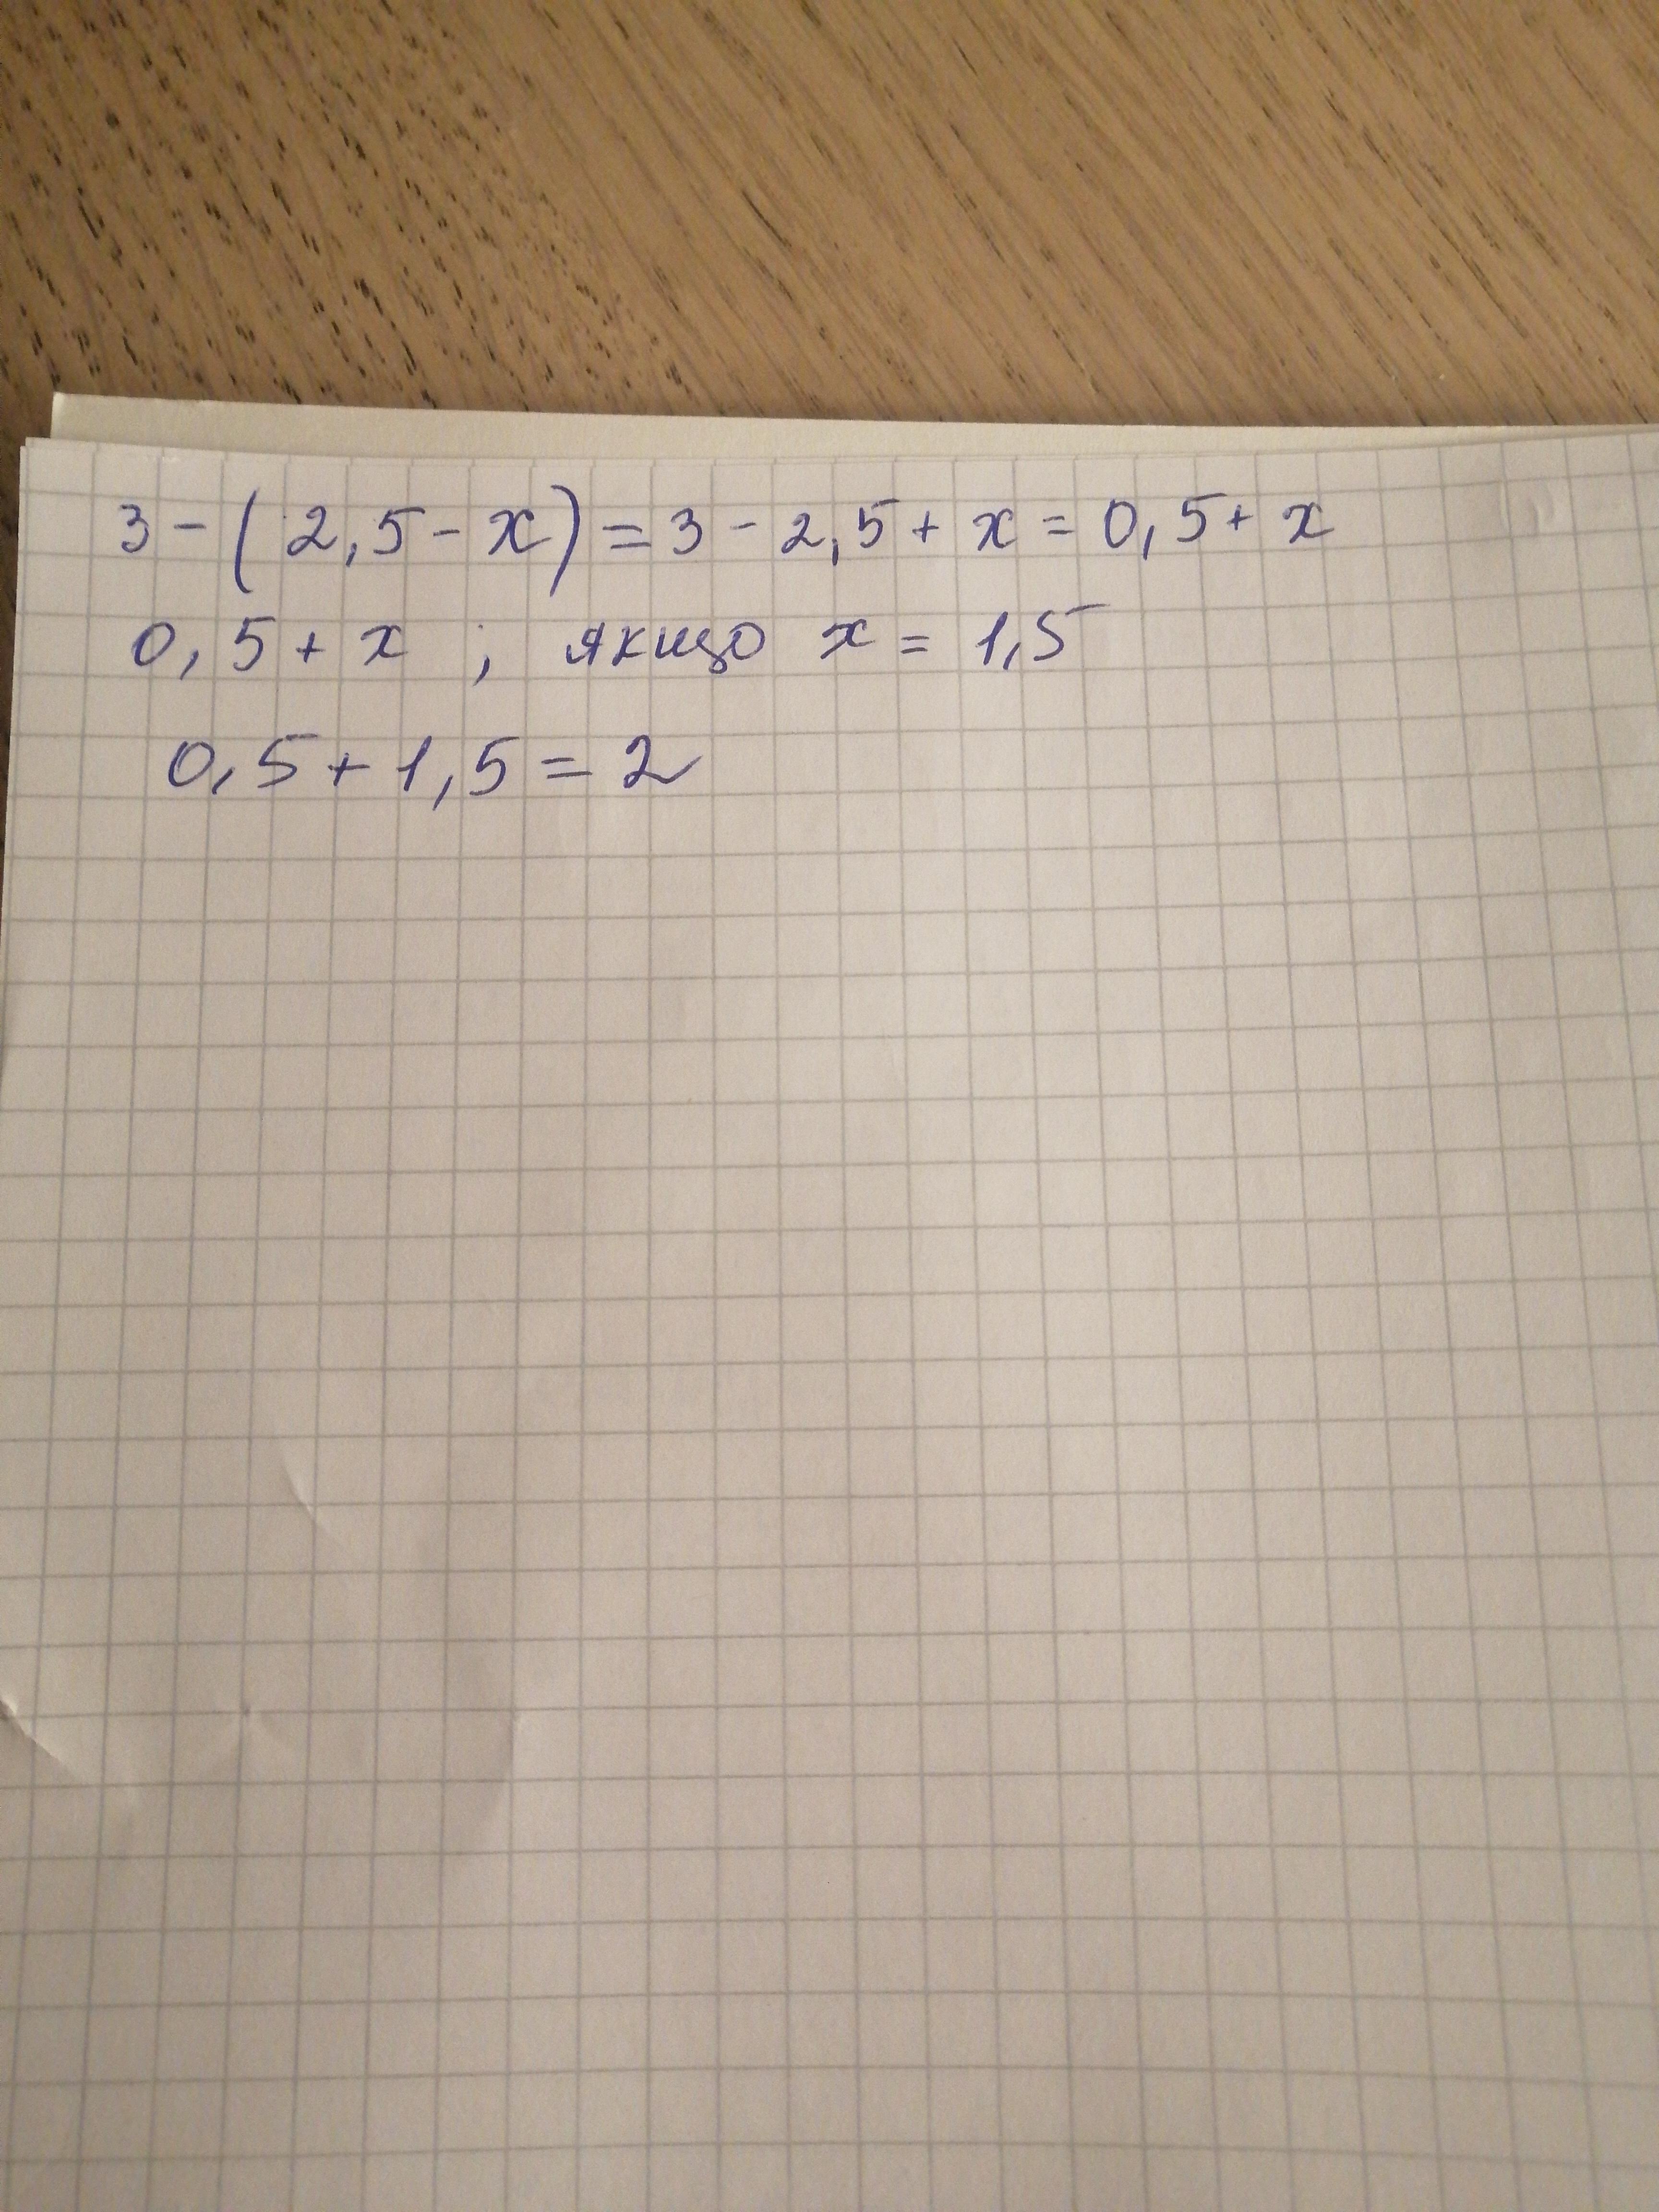 3 - ( 2,5 - x ) = 3 - 2,5 + x = 0,5 + x
0,5 + x ; якщо x = 1,5
0,5 + 1,5 = 2